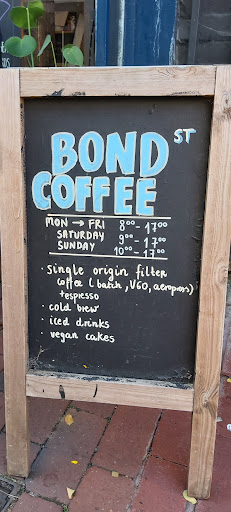 BOND ST
COFFEE
MON → FRI 8⁰⁰ - 17⁰⁰
SATURDAY 9⁰⁰ - 17⁰⁰
SUNDAY 10⁰⁰ - 17⁰⁰
· single origin filter
coffee (batch, V60, aeropress)
+ espresso
· cold brew
· iced drinks
· vegan cakes